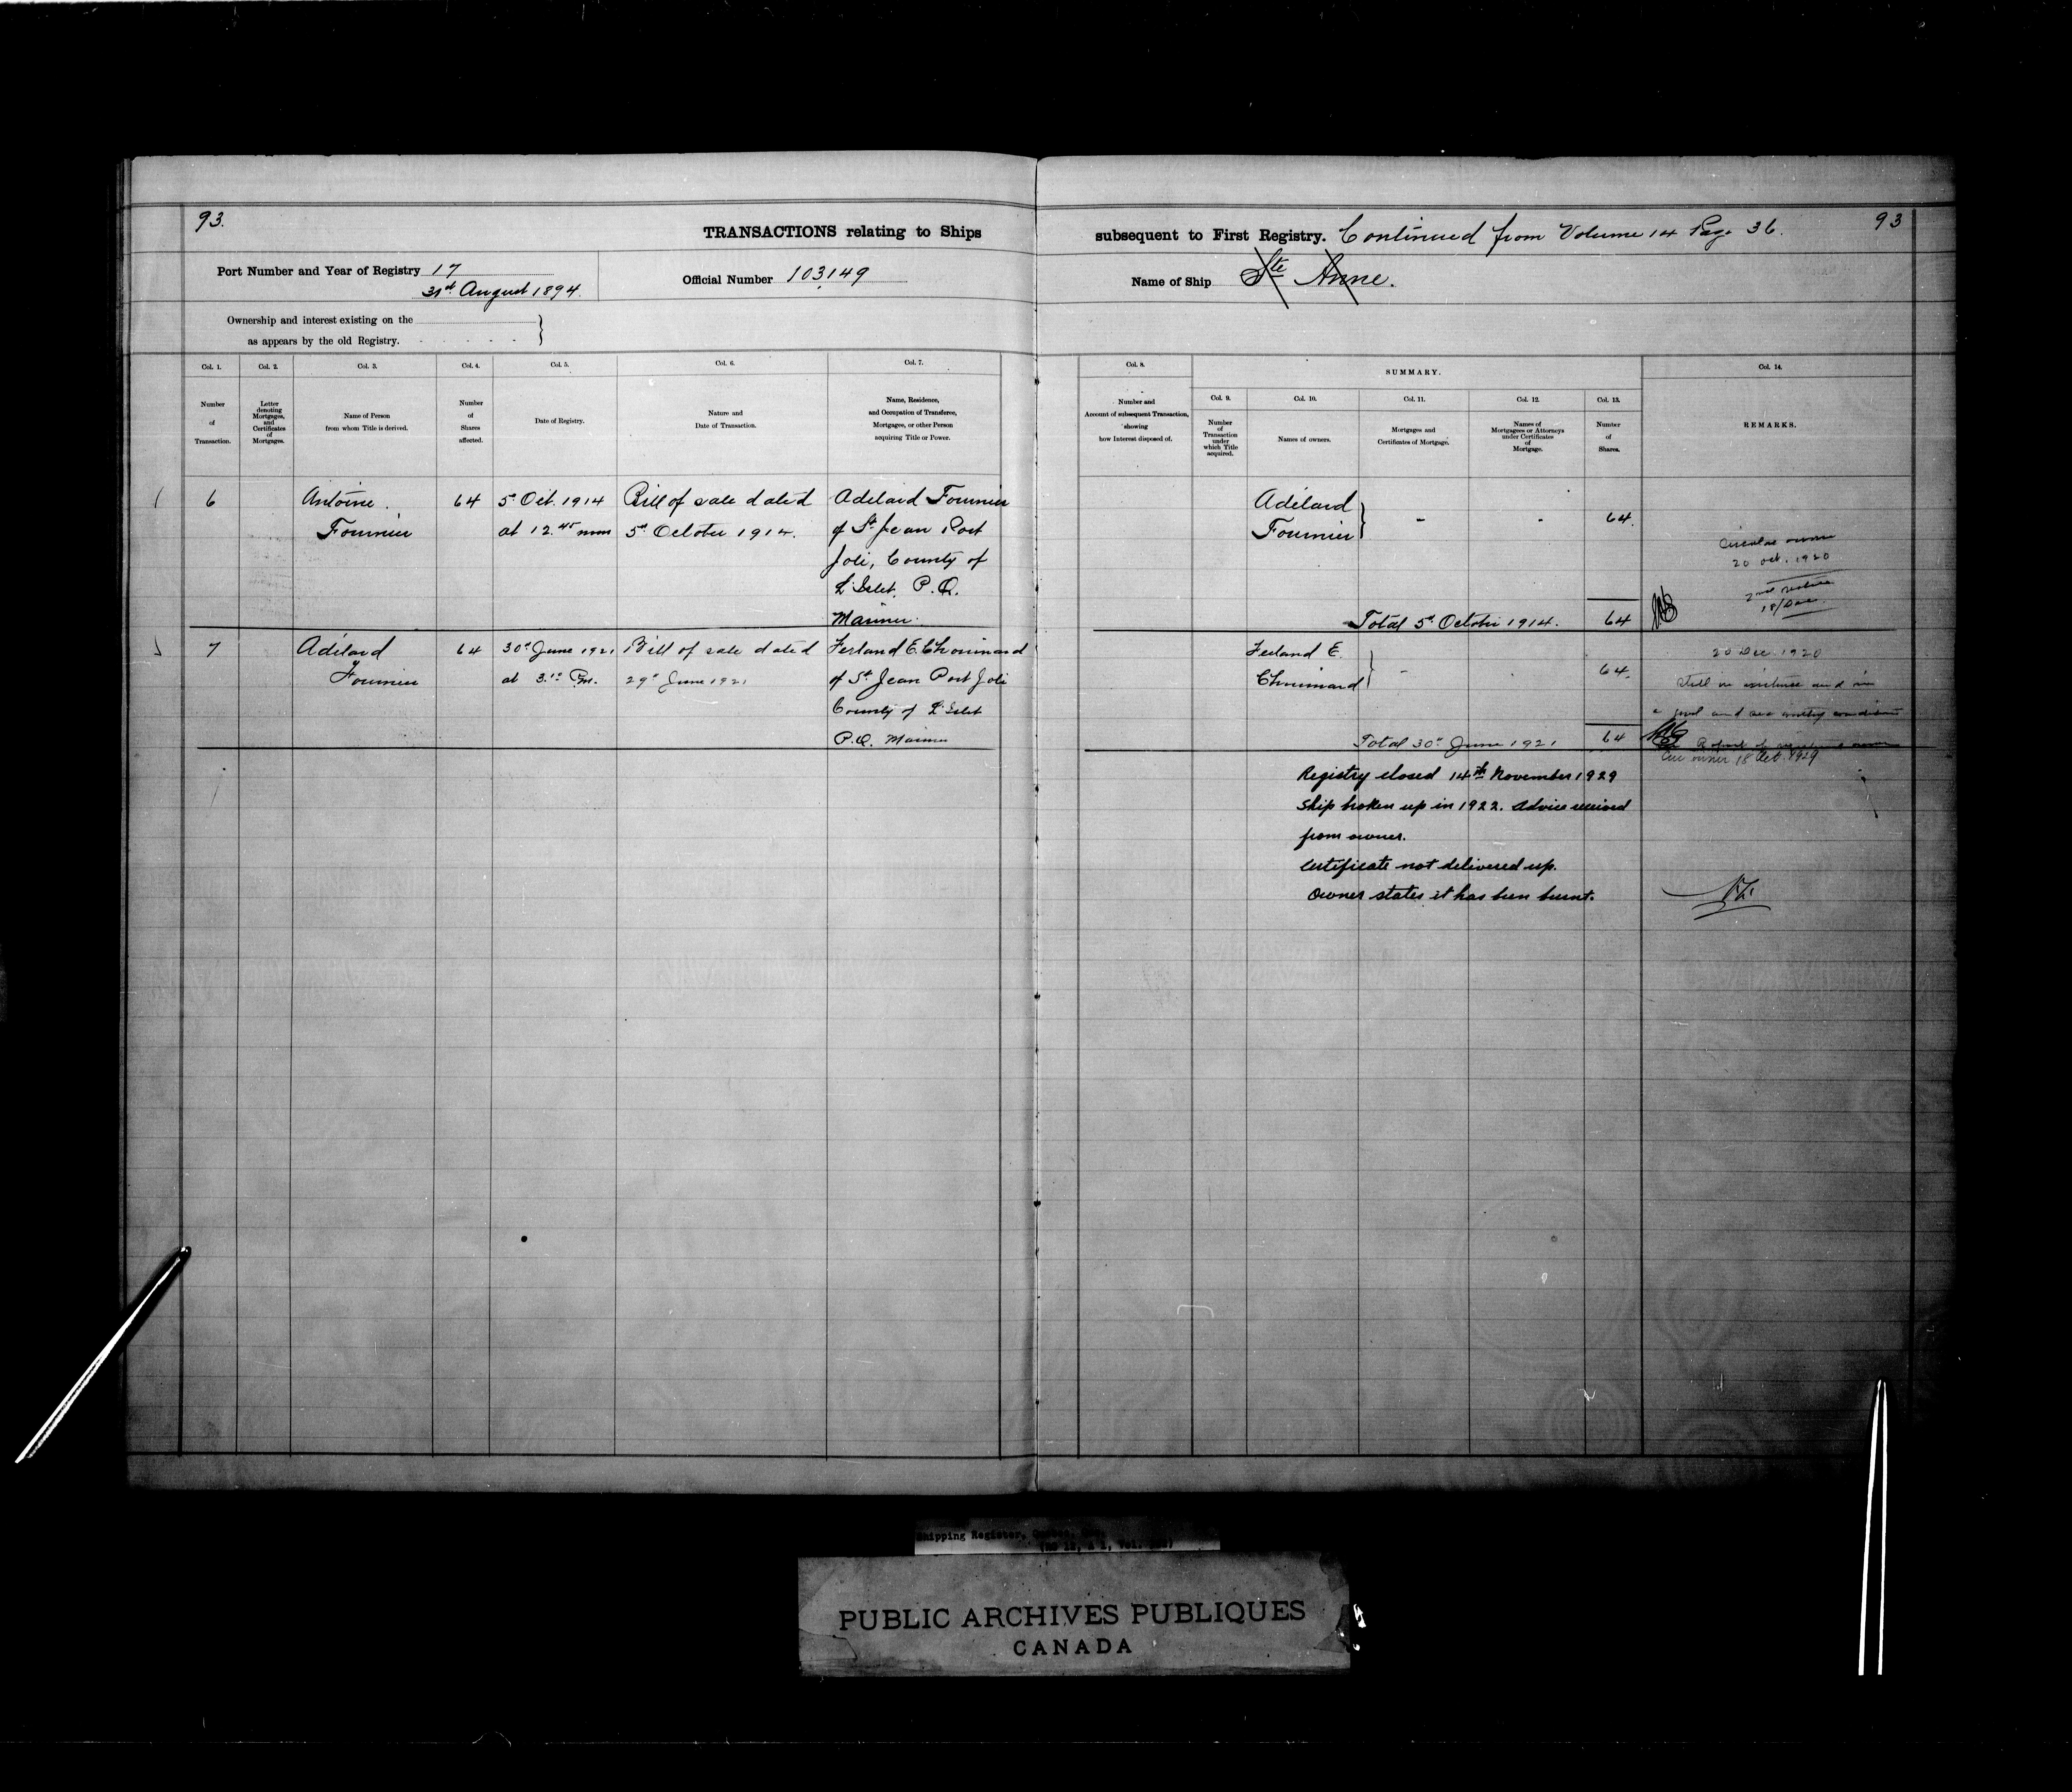 93.
TRANSACTIONS relating to Ships
subsequent to First Registry. Continued from Volume 14 Page 36.
93
Port Number and Year of Registry 17
31st August 1894.
Official Number 103149
Name of Ship Ste Anne.
Ownership and interest existing on the
as appears by the old Registry.
Col. 1.
Number
of
Transaction.
Col. 2.
Letter
denoting
Mortgages,
and
Certificates
of
Mortgages.
Col. 3.
Name of Person
from whom Title is derived.
Col. 4.
Number
of
Shares
affected.
Col. 5.
Date of Registry.
Col. 6.
Nature and
Date of Transaction.
Col. 7.
Name, Residence,
and Occupation of Transferee,
Mortgagee, or other Person
acquiring Title or Power.
Col. 8.
Number and
Account of subsequent Transaction,
showing
how Interest disposed of.
SUMMARY.
Col. 9.
Number
of
Transaction
under
which Title
acquired.
Col. 10.
Names of owners.
Col. 11.
Mortgages and
Certificates of Mortgage.
Col. 12.
Names of
Mortgagees or Attorneys
under Certificates
of
Mortgage.
Col. 13.
Number
of
Shares.
Col. 14.
REMARKS.
6
Antoine
Fournier
64
5th Oct. 1914
at 12.45 noon
Bill of sale dated
5th October 1914.
Adelard Fournier
of St Jean Port
Joli, County of
L'Islet. P.Q.
Mariner.
Adélard
Fournier
64.
Total 5th October 1914. 64
Circular owner
20 oct. 1920
2nd notice
18/Dec.
7
Adélard
Fournier
64
30th June 1921
at 3.10 Pm.
Bill of sale dated
29th June 1921
Ferland E. Chouinard
of St Jean Port Joli
County of L'Islet
P.Q. Mariner
Ferland E.
Chouinard
64.
Total 30th June 1921 64
20 Dec. 1920
Still in existence and in
a good and sea worthy condition
Cir owner 18 Oct. 1929
Registry closed 14th November 1929
Ship broken up in 1922. Advice received
from owner.
Certificate not delivered up.
Owner states it has been burnt.
Shipping Register,
PUBLIC ARCHIVES PUBLIQUES
CANADA